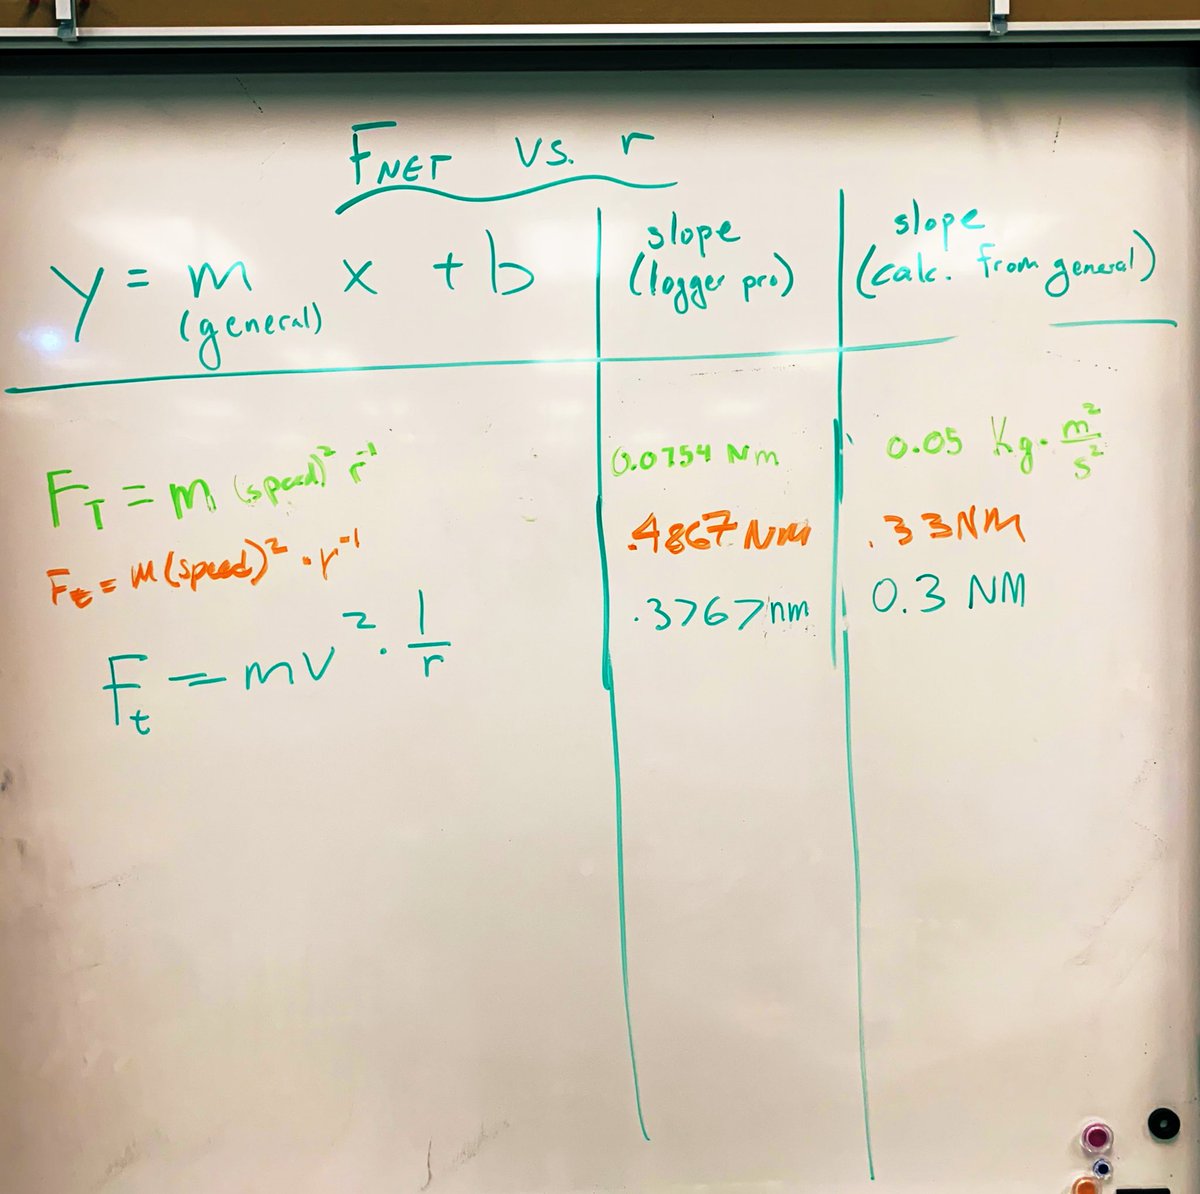 FNET vs. r
y = m x + b
(general)
slope
(logger pro)
slope
(calc. from general)
F_T = m (speed)² r⁻¹
0.0754 Nm
0.05 Kg · m²/s²
F_t = m(speed)² · r⁻¹
.4867 Nm
.33NM
F_t = mv² · 1/r
.3767nm
0.3 NM